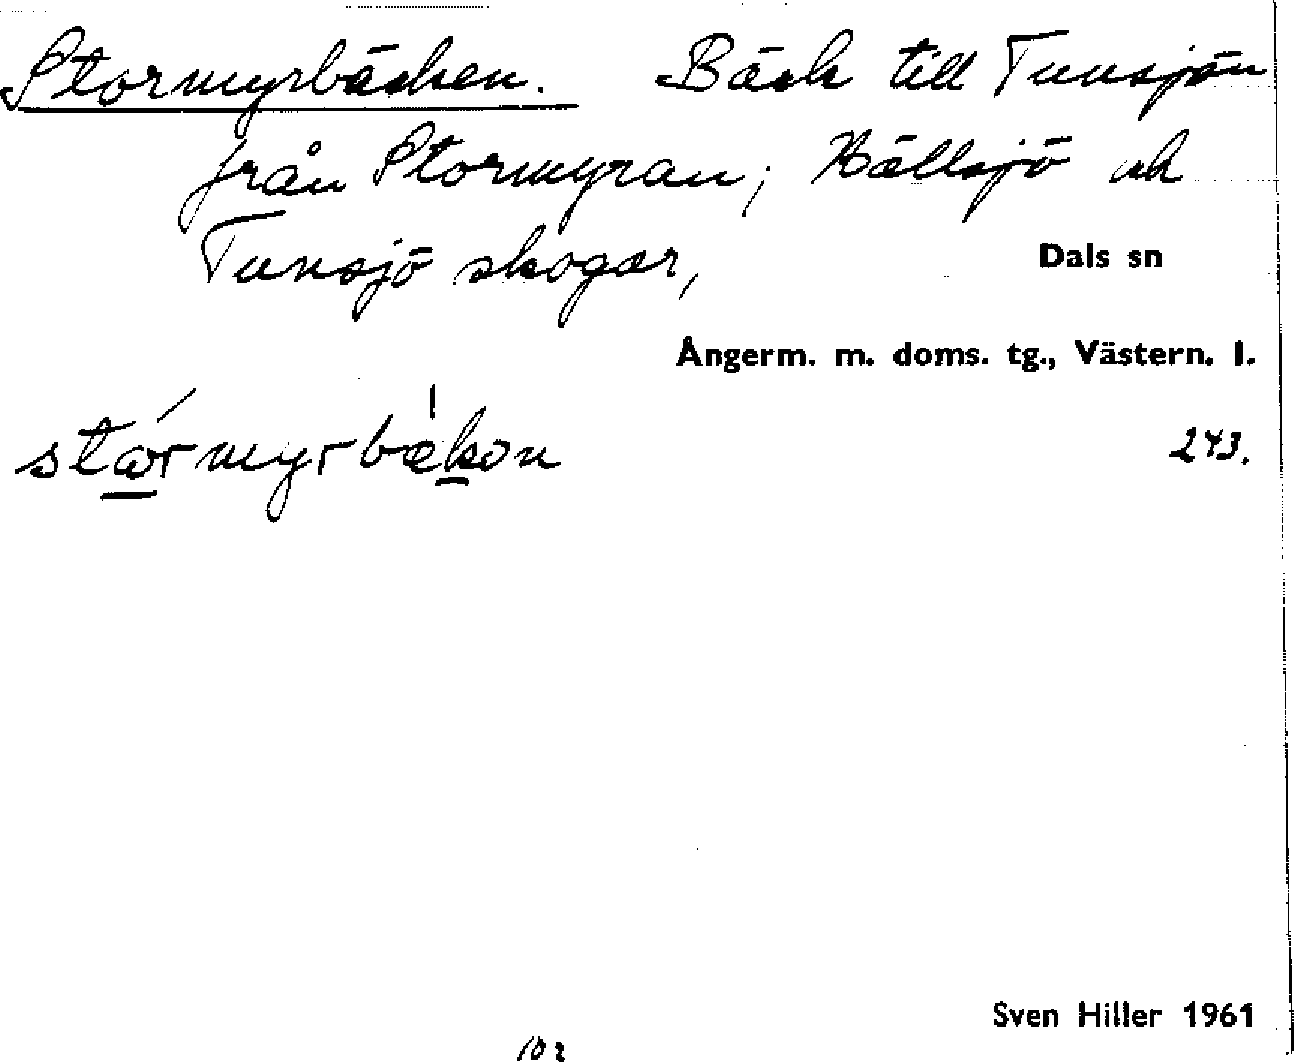 Stormyrbäcken. Bäck till Tunsjön
från Stormyran; Hällsjö och
Tunsjö skogar,
Dals sn
Ångerm. m. doms. tg., Västern. l.
243.
Sven Hiller 1961
102